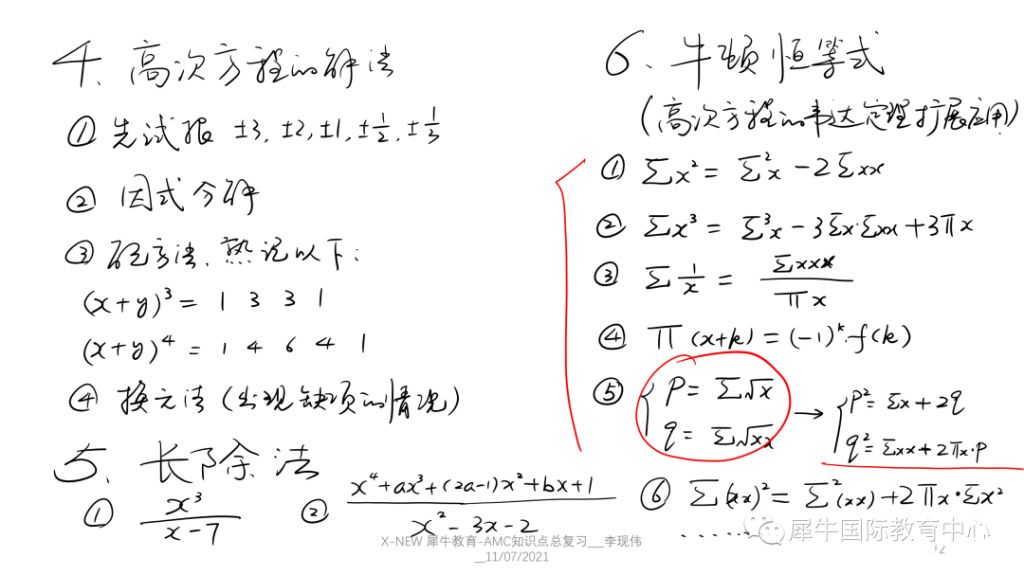 4、高次方程的解法
① 先试根 ±3, ±2, ±1, ±1/2, ±1/3
② 因式分解
③ 配方法、熟记以下：
(x+y)³ = 1 3 3 1
(x+y)⁴ = 1 4 6 4 1
④ 换元法（出现缺项的情况）
5、长除法
① x³/(x-7)
② (x⁴+ax³+(2a-1)x²+bx+1)/(x²-3x-2)
6、牛顿恒等式
（高次方程的韦达定理扩展应用）
① Σx² = Σ²x - 2Σxx
② Σx³ = Σ³x - 3Σx·Σxx + 3πx
③ Σ1/x = Σxxx/πx
④ π(x+k) = (-1)ᵏ·f(k)
⑤ { p = Σ√x
q = Σ√xx
→ { p² = Σx + 2q
q² = Σxx + 2πx·p
⑥ Σ(xx)² = Σ²(xx) + 2πx·Σx²
......
犀牛国际教育中心
X-NEW 犀牛教育-AMC知识点总复习__李现伟
__11/07/2021
12